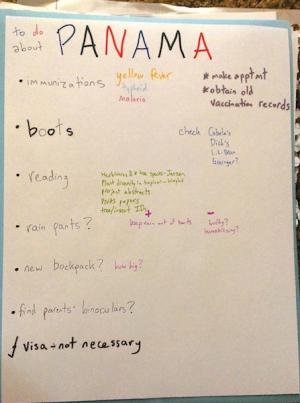 to do about PANAMA
• immunizations
yellow fever
typhoid
malaria
* make apptmt
* obtain old
vaccination records
• boots
check Cabela's
Dick's
L.L. Bean
Grainger?
• reading
Plant diversity in tropical
project abstracts
papers
tree/insect IDs
• rain pants?
+
keep rain out of boots
-
bulky?
• new backpack? how big?
• find parents' binoculars?
visa - not necessary